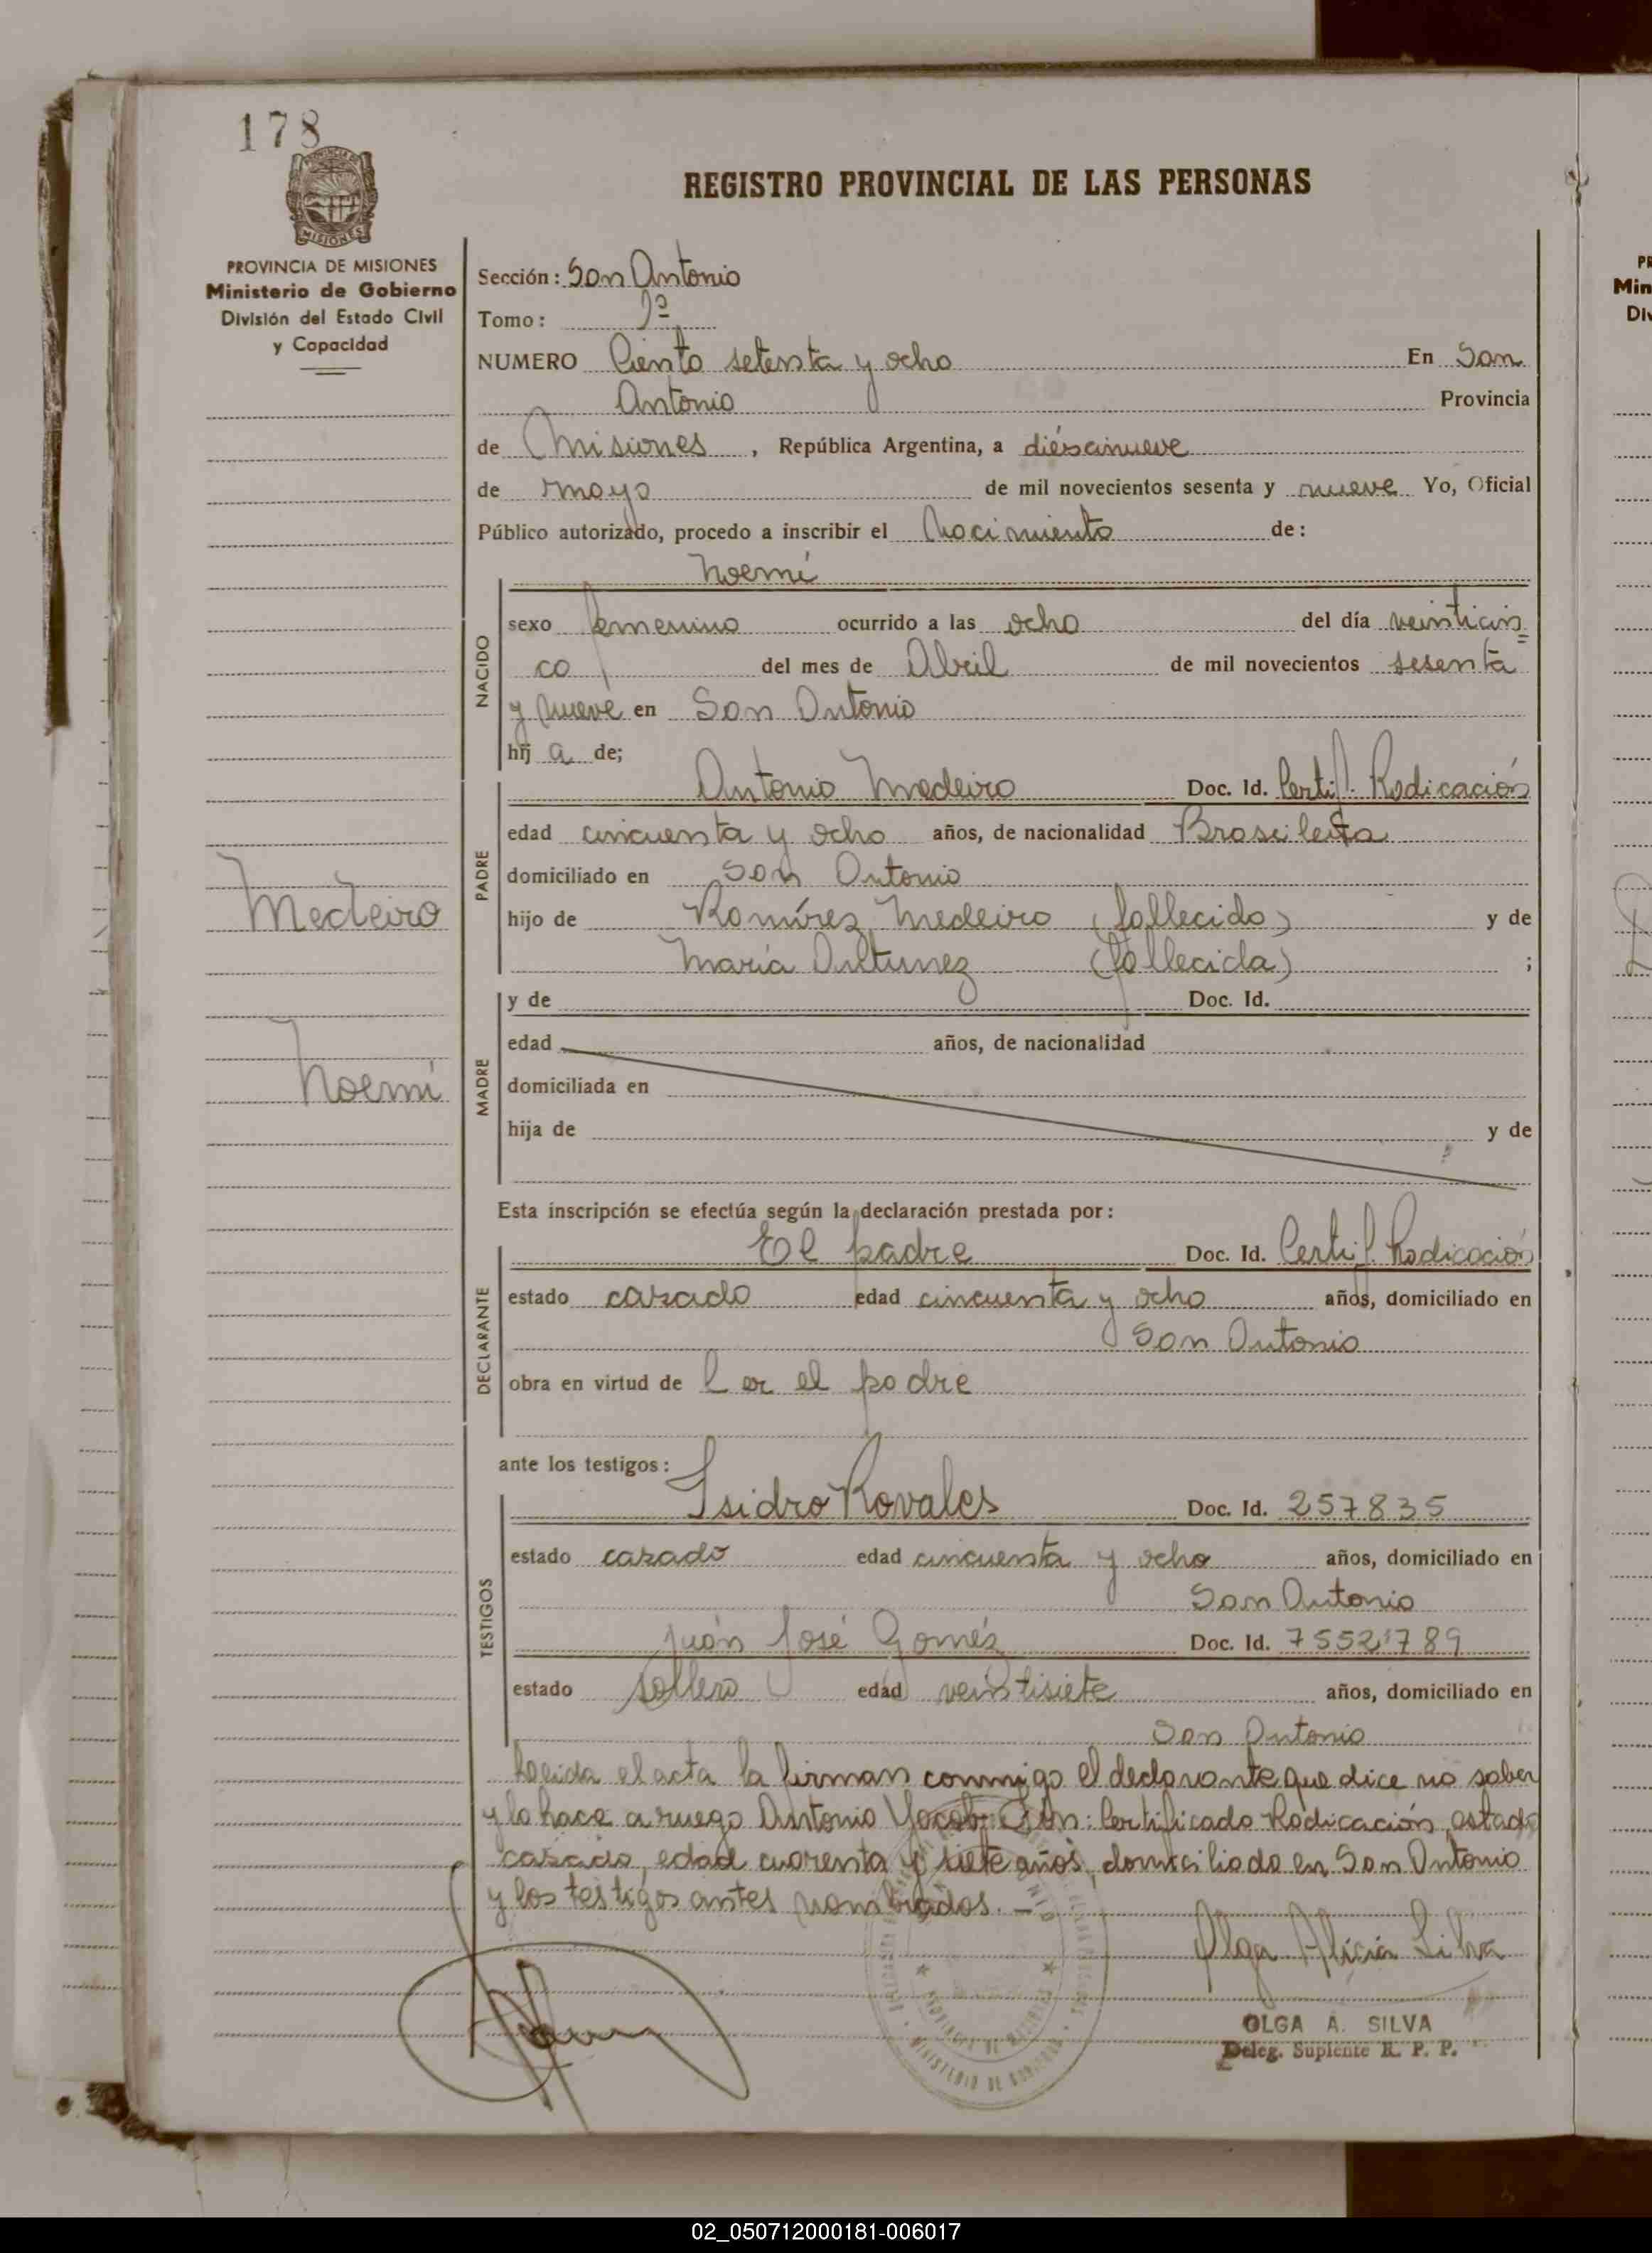 178
REGISTRO PROVINCIAL DE LAS PERSONAS
PROVINCIA DE MISIONES
Ministerio de Gobierno
División del Estado Civil
y Capacidad
Sección: San Antonio
Tomo: 1º
NUMERO Ciento setenta y ocho En San
Antonio Provincia
de Misiones, República Argentina, a diéscinueve
de mayo de mil novecientos sesenta y nueve Yo, Oficial
Público autorizado, procedo a inscribir el Nacimiento de:
Noemí
NACIDO
sexo femenino ocurrido a las ocho del día veinticin=
co del mes de Abril de mil novecientos sesenta
y nueve en San Antonio
hij a de;
PADRE
Antonio Medeiro Doc. Id. Certif. Radicación
edad cincuenta y ocho años, de nacionalidad Brasileña
domiciliado en San Antonio
Medeiro
hijo de Ramírez Medeiro (fallecido) y de
María Antunez (fallecida) ;
MADRE
y de Doc. Id.
edad años, de nacionalidad
Noemí
domiciliada en
hija de y de
Esta inscripción se efectúa según la declaración prestada por:
DECLARANTE
El padre Doc. Id. Certif. Radicación
estado casado edad cincuenta y ocho años, domiciliado en
San Antonio
obra en virtud de Ser el padre
ante los testigos:
TESTIGOS
Isidro Rovales Doc. Id. 257835
estado casado edad cincuenta y ocho años, domiciliado en
San Antonio
Juán José Goméz Doc. Id. 7552.789
estado soltero edad veintisiete años, domiciliado en
San Antonio
Leída el acta la firman conmigo el declarante que dice no saber
y lo hace a ruego Antonio Certificado Radicación, estado
casado, edad cuarenta y siete años, domiciliado en San Antonio
y los testigos antes nombrados. —
Olga Alicia Silva
OLGA A. SILVA
Deleg. Suplente R. P. P.
PROVINCIA DE MISIONES
MINISTERIO DE GOBIERNO
02_050712000181-006017